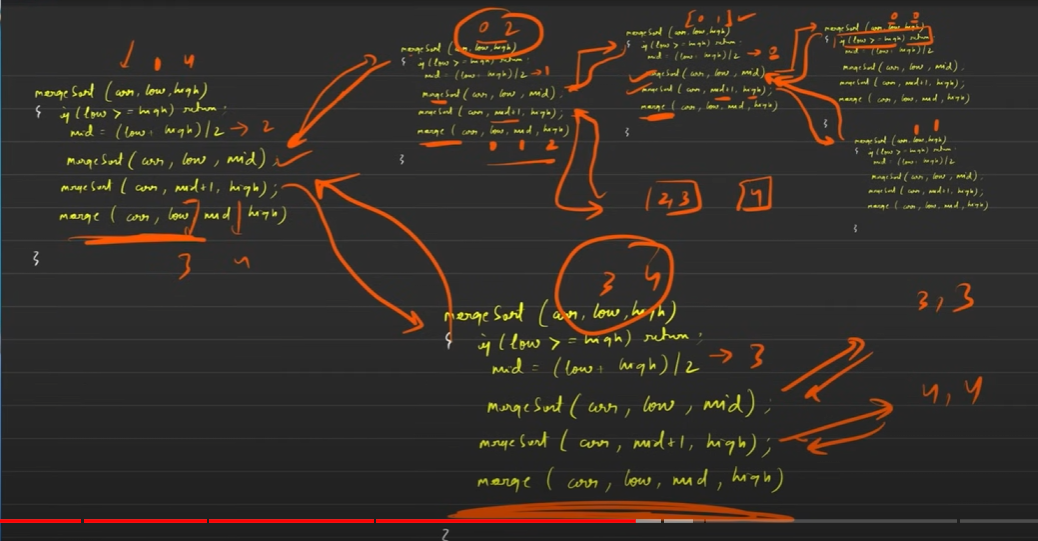 0 4
mergeSort (arr, low, high)
{ if (low >= high) return;
mid = (low + high)/2 → 2
mergeSort (arr, low, mid);
mergeSort (arr, mid+1, high);
merge (arr, low, mid, high)
3 4
}
0 2
mergeSort (arr, low, high)
{ if (low >= high) return;
mid = (low + high)/2 → 1
mergeSort (arr, low, mid);
mergeSort (arr, mid+1, high);
merge (arr, low, mid, high)
}
[0 1]
mergeSort (arr, low, high)
{ if (low >= high) return;
mid = (low + high)/2 → 0
mergeSort (arr, low, mid)
mergeSort (arr, mid+1, high);
merge (arr, low, mid, high)
}
0 0
mergeSort (arr, low, high)
{ if (low >= high) return;
mid = (low + high)/2
mergeSort (arr, low, mid);
mergeSort (arr, mid+1, high);
merge (arr, low, mid, high)
}
1 1
mergeSort (arr, low, high)
{ if (low >= high) return;
mid = (low + high)/2
mergeSort (arr, low, mid);
mergeSort (arr, mid+1, high);
merge (arr, low, mid, high)
}
3 4
mergeSort (arr, low, high)
{ if (low >= high) return;
mid = (low + high)/2 → 3
mergeSort (arr, low, mid);
mergeSort (arr, mid+1, high);
merge (arr, low, mid, high)
3, 3
4, 4